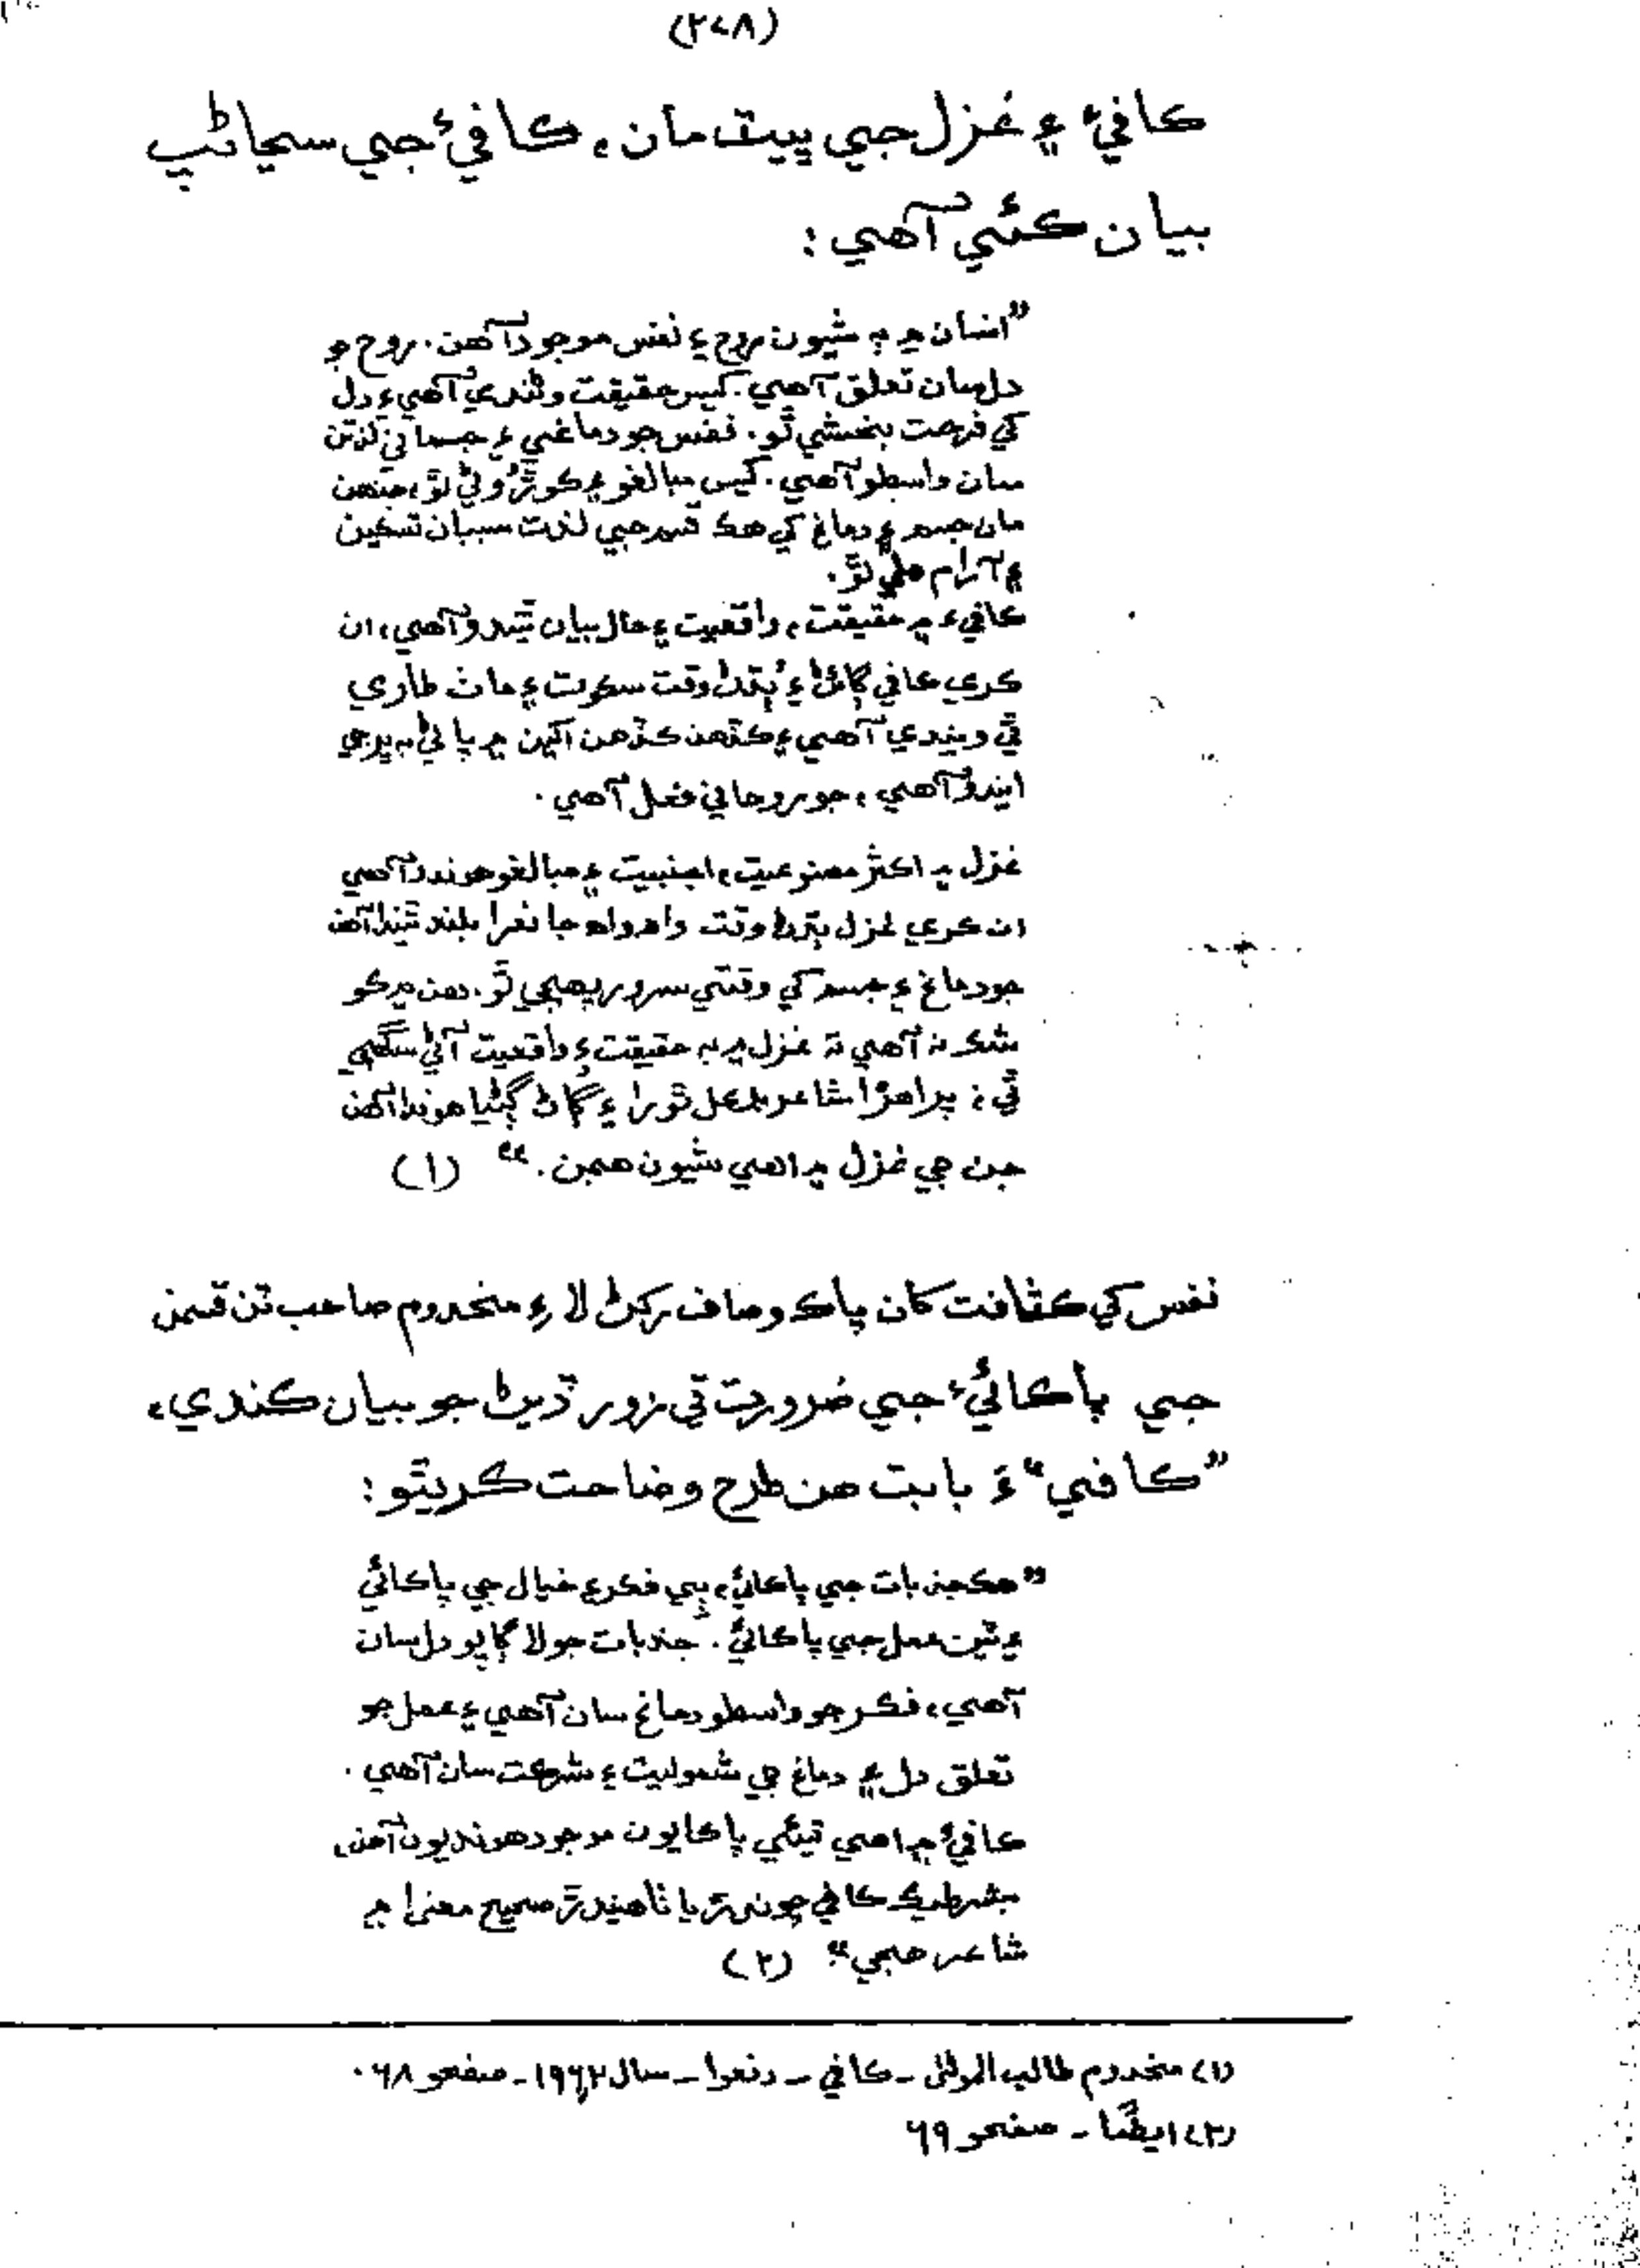 (۲۷۸)
ڪافيءَ ۽ غزل جي ڀيٽ مان، ڪافيءَ جي سڃاڻپ
بيان ڪئي آهي:
”انسان ۾ ٻه شيون روح ۽ نفس موجود آهن. روح جو
دل سان تعلق آهي. کيس حقيقت وڻندي آهي ۽ دل
کي فرحت بخشي ٿو. نفس جو دماغي ۽ جسماني لذتن
سان واسطو آهي. کيس مبالغو ۽ ڪوڙ وڻي ٿو، جنهن
مان جسم ۽ دماغ کي هڪ قسم جي لذت سببان تسڪين
۽ آرام ملي ٿو.
ڪافيءَ ۾ حقيقت، واقعيت ۽ حال بيان ٿيندو آهي، ان
ڪري ڪافي ڳائڻ ۽ ٻڌڻ وقت سڪوت ۽ ماٺ طاري
ٿي ويندي آهي ۽ ڪڏهن ڪڏهن اکين ۾ پاڻي به ڀرجي
ايندو آهي، جو روحاني فعل آهي.
غزل ۾ اڪثر مصنوعيت، اجنبيت ۽ مبالغو هوندو آهي
ان ڪري غزل ٻڌڻ وقت واهه واهه جا نعرا بلند ٿيندا آهن
جو دماغ ۽ جسم کي وقتي سرور پهچي ٿو. هن ۾ ڪو
شڪ نه آهي ته غزل ۾ به حقيقت ۽ واقعيت آڻي سگهجي
ٿي؛ پر اهڙا شاعر بلڪل ٿورا ۽ ڳاڻ ڳڻيا هوندا آهن
جن جي غزل ۾ اهي شيون هجن.“ (۱)
نفس کي ڪثافت کان پاڪ و صاف رکڻ لاءِ مخدوم صاحب ٽن قسمن
جي پاڪائيءَ جي ضرورت تي زور ڏيڻ جو بيان ڪندي،
”ڪافي“ءَ بابت هن طرح وضاحت ڪري ٿو:
”هڪ جذبات جي پاڪائي، ٻي فڪر ۽ خيال جي پاڪائي
۽ ٽين عمل جي پاڪائي. جذبات جو لاڳاپو دل سان
آهي، فڪر جو واسطو دماغ سان آهي ۽ عمل جو
تعلق دل ۽ دماغ جي شموليت ۽ شرڪت سان آهي.
ڪافيءَ ۾ اهي ٽيئي پاڪايون موجود هونديون آهن،
بشرطيڪ ڪافي چوندڙ يا ٺاهيندڙ صحيح معنيٰ ۾
شاعر هجي“ (۲)
(۱) مخدوم طالب الموليٰ ـ ڪافي ـ دفعو۱ ـ سال ۱۹۶۲ ـ صفحو ۶۸.
(۲) ايضًا ـ صفحو ۶۹